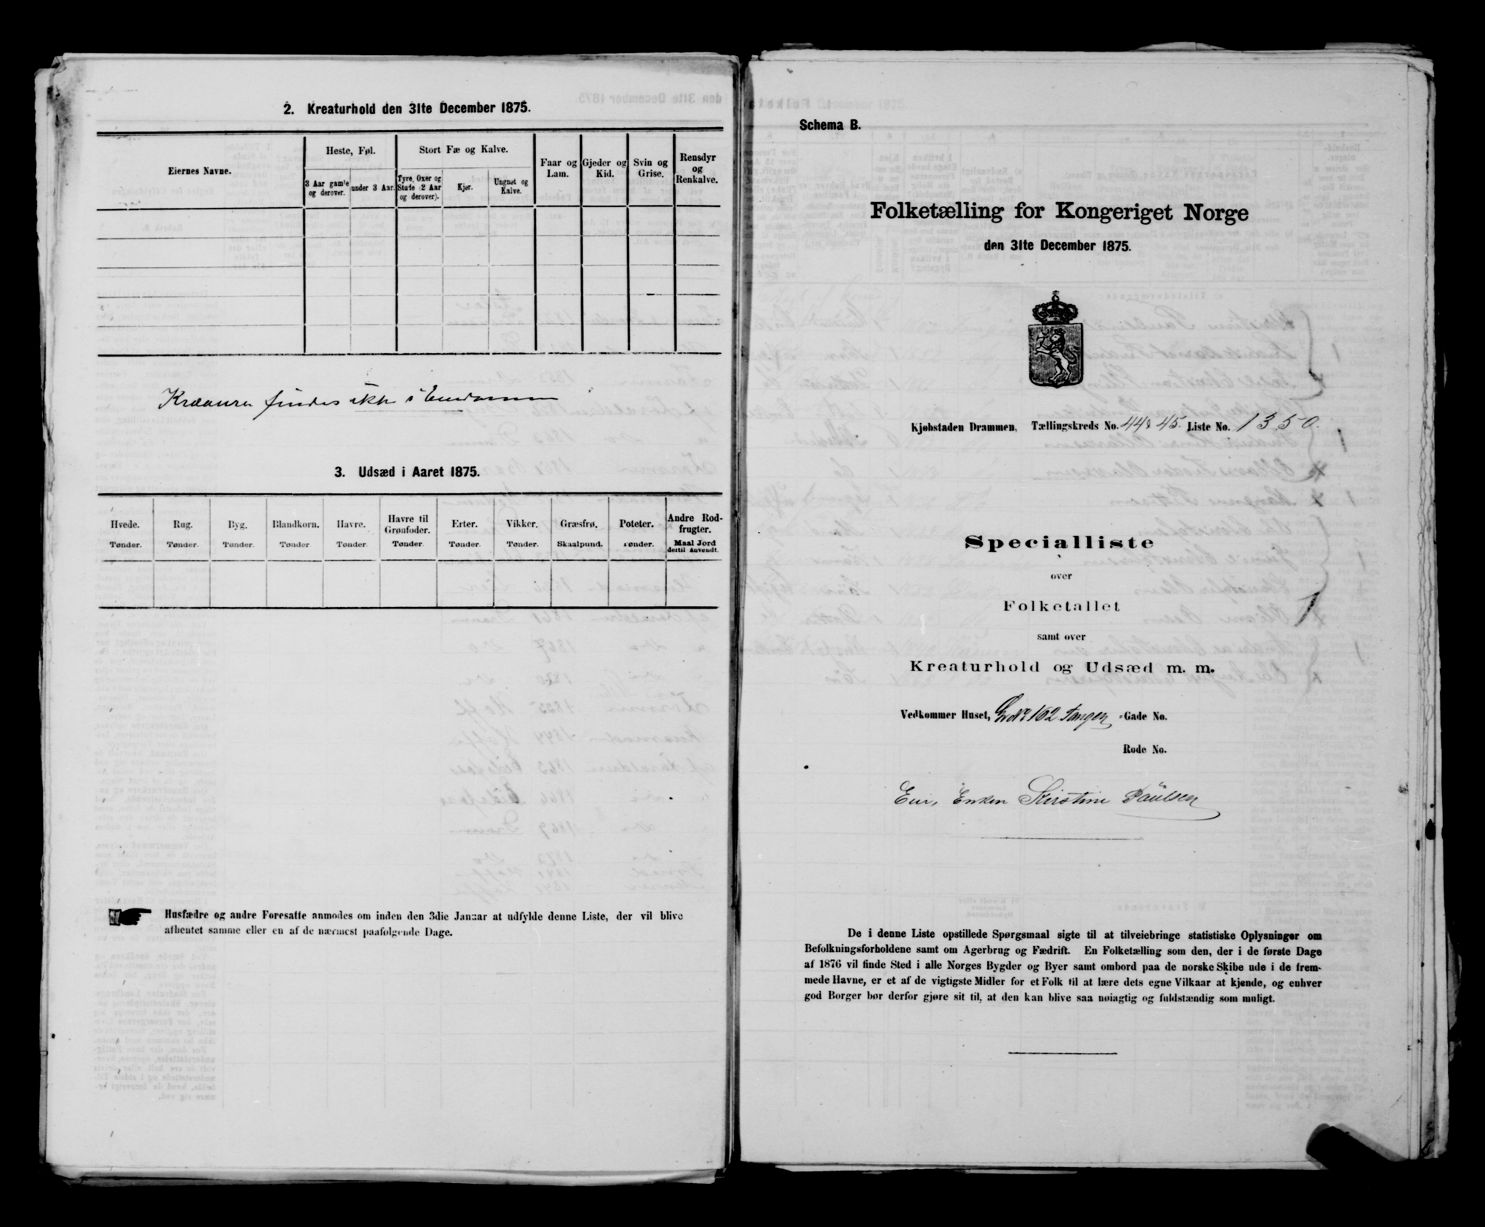 2. Kreaturhold den 31te December 1875.
Eiernes Navne.
Heste, Føl.
Stort Fæ og Kalve.
Faar og Lam.
Gjeder og Kid.
Svin og Grise.
Rensdyr og Renkalve.
3 Aar gamle og derover.
under 3 Aar.
Tyre, Oxer og Stude (2 Aar og derover).
Kjør.
Ungnet og Kalve.
Kreaturer findes ikke i Eiendommen
3. Udsæd i Aaret 1875.
Hvede. Rug. Byg. Blandkorn. Havre. Havre til Grønfoder. Erter. Vikker. Græsfrø. Poteter. Andre Rodfrugter.
Tønder. Tønder. Tønder. Tønder Tønder. Tønder. Tønder. Tønder. Skaalpund. Tønder. Maal Jord dertil Anvendt.
Husfædre og andre Foresatte anmodes om inden den 3die Januar at udfylde denne Liste, der vil blive
afhentet samme eller en af de nærmest paafølgende Dage.
Schema B.
Folketælling for Kongeriget Norge
den 31te December 1875.
Kjøbstaden Drammen, Tællingskreds No. 44 & 45. Liste No. 1350.
Specialliste
over
Folketallet
samt over
Kreaturhold og Udsæd m. m.
Vedkommer Huset, 162 Tangen Gade No.
Rode No.
Eier, Enken Kirstine Paulsen
De i denne Liste opstillede Spørgsmaal sigte til at tilveiebringe statistiske Oplysninger om
Befolkningsforholdene samt om Agerbrug og Fædrift. En Folketælling som den, der i de første Dage
af 1876 vil finde Sted i alle Norges Bygder og Byer samt ombord paa de norske Skibe ude i de frem-
mede Havne, er et af de vigtigste Midler for et Folk til at lære dets egne Vilkaar at kjende, og enhver
god Borger bør derfor gjøre sit til, at den kan blive saa nøiagtig og fuldstændig som muligt.